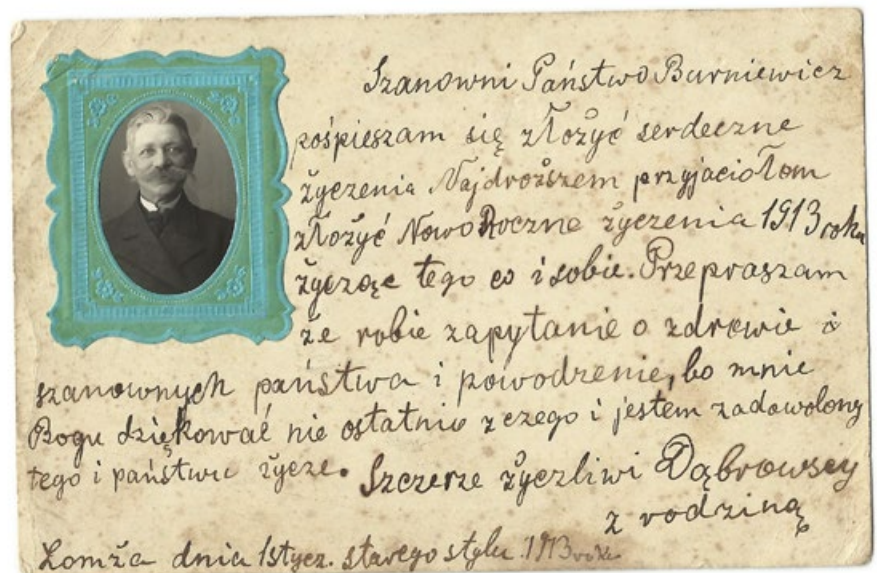 Szanowni Państwo Burniewicz
pośpieszam się złożyć serdeczne
życzenia Najdroższem przyjaciołom
złożyć Nowo Roczne życzenia 1913 roku
życząc tego co i sobie. Przepraszam
że robie zapytanie o zdrowie i
szanownych państwa i powodzenie, bo mnie
Bogu dziękować nie ostatnio z czego i jestem zadowolony
tego i państwu życze. Szczerze życzliwi Dąbrowscy
z rodziną
Łomża dnia 1 stycz. starego stylu 1913 roku